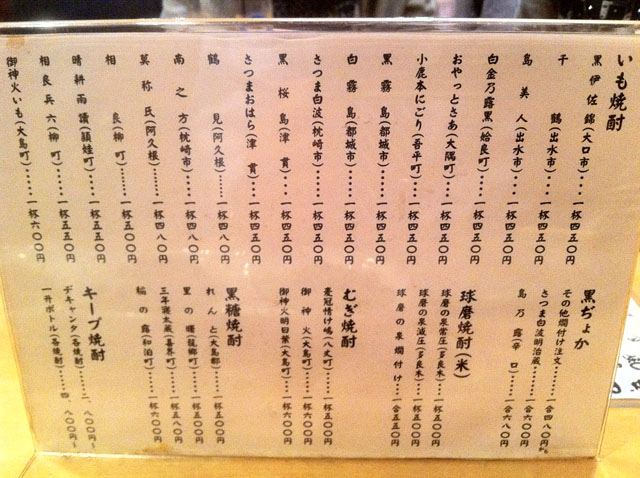 いも焼酎
黒伊佐錦(大口市)・・・・・一杯四五〇円
千鶴(出水市)・・・・・一杯四五〇円
島美人(出水市)・・・・・一杯四五〇円
白金乃露黒(姶良町)・・・・・一杯四五〇円
おやっとさあ(大隅町)・・・・・一杯四五〇円
小鹿本にごり(吾平町)・・・・・一杯四五〇円
黒霧島(都城市)・・・・・一杯四五〇円
白霧島(都城市)・・・・・一杯四五〇円
さつま白波(枕崎市)・・・・・一杯四五〇円
黒桜島(津貫)・・・・・一杯四五〇円
さつまおはら(津貫)・・・・・一杯四五〇円
鶴見(阿久根)・・・・・一杯四八〇円
南之方(枕崎市)・・・・・一杯四八〇円
莫祢氏(阿久根)・・・・・一杯四八〇円
相良(柳町)・・・・・一杯五〇〇円
晴耕雨讀(頴娃町)・・・・・一杯五五〇円
相良兵六(柳町)・・・・・一杯五五〇円
御神火いも(大島町)・・・・・一杯六〇〇円
黒ぢょか
その他燗付け注文・・・・・一合四八〇円から
さつま白波明治蔵・・・・・一合六〇〇円
島乃露(辛口)・・・・・一合六八〇円
球磨焼酎(米)
球磨の泉常圧(多良木)・・・・・一杯五〇〇円
球磨の泉減圧(多良木)・・・・・一杯五〇〇円
球磨の泉燗付け・・・・・一合五五〇円
むぎ焼酎
憂冠情け嶋(八丈町)・・・・・一杯五〇〇円
御神火(大島町)・・・・・一杯五〇〇円
御神火明日葉(大島町)・・・・・一杯六〇〇円
黒糖焼酎
れんと(大島郡)・・・・・一杯五〇〇円
里の曙(龍郷町)・・・・・一杯五〇〇円
三年寝太蔵(喜界町)・・・・・一杯五八〇円
稲の露(和泊町)・・・・・一杯六〇〇円
キープ焼酎
デキャンタ(各焼酎)・・・・・二、八〇〇円〜
一升ボトル(各焼酎)・・・・・四、八〇〇円〜